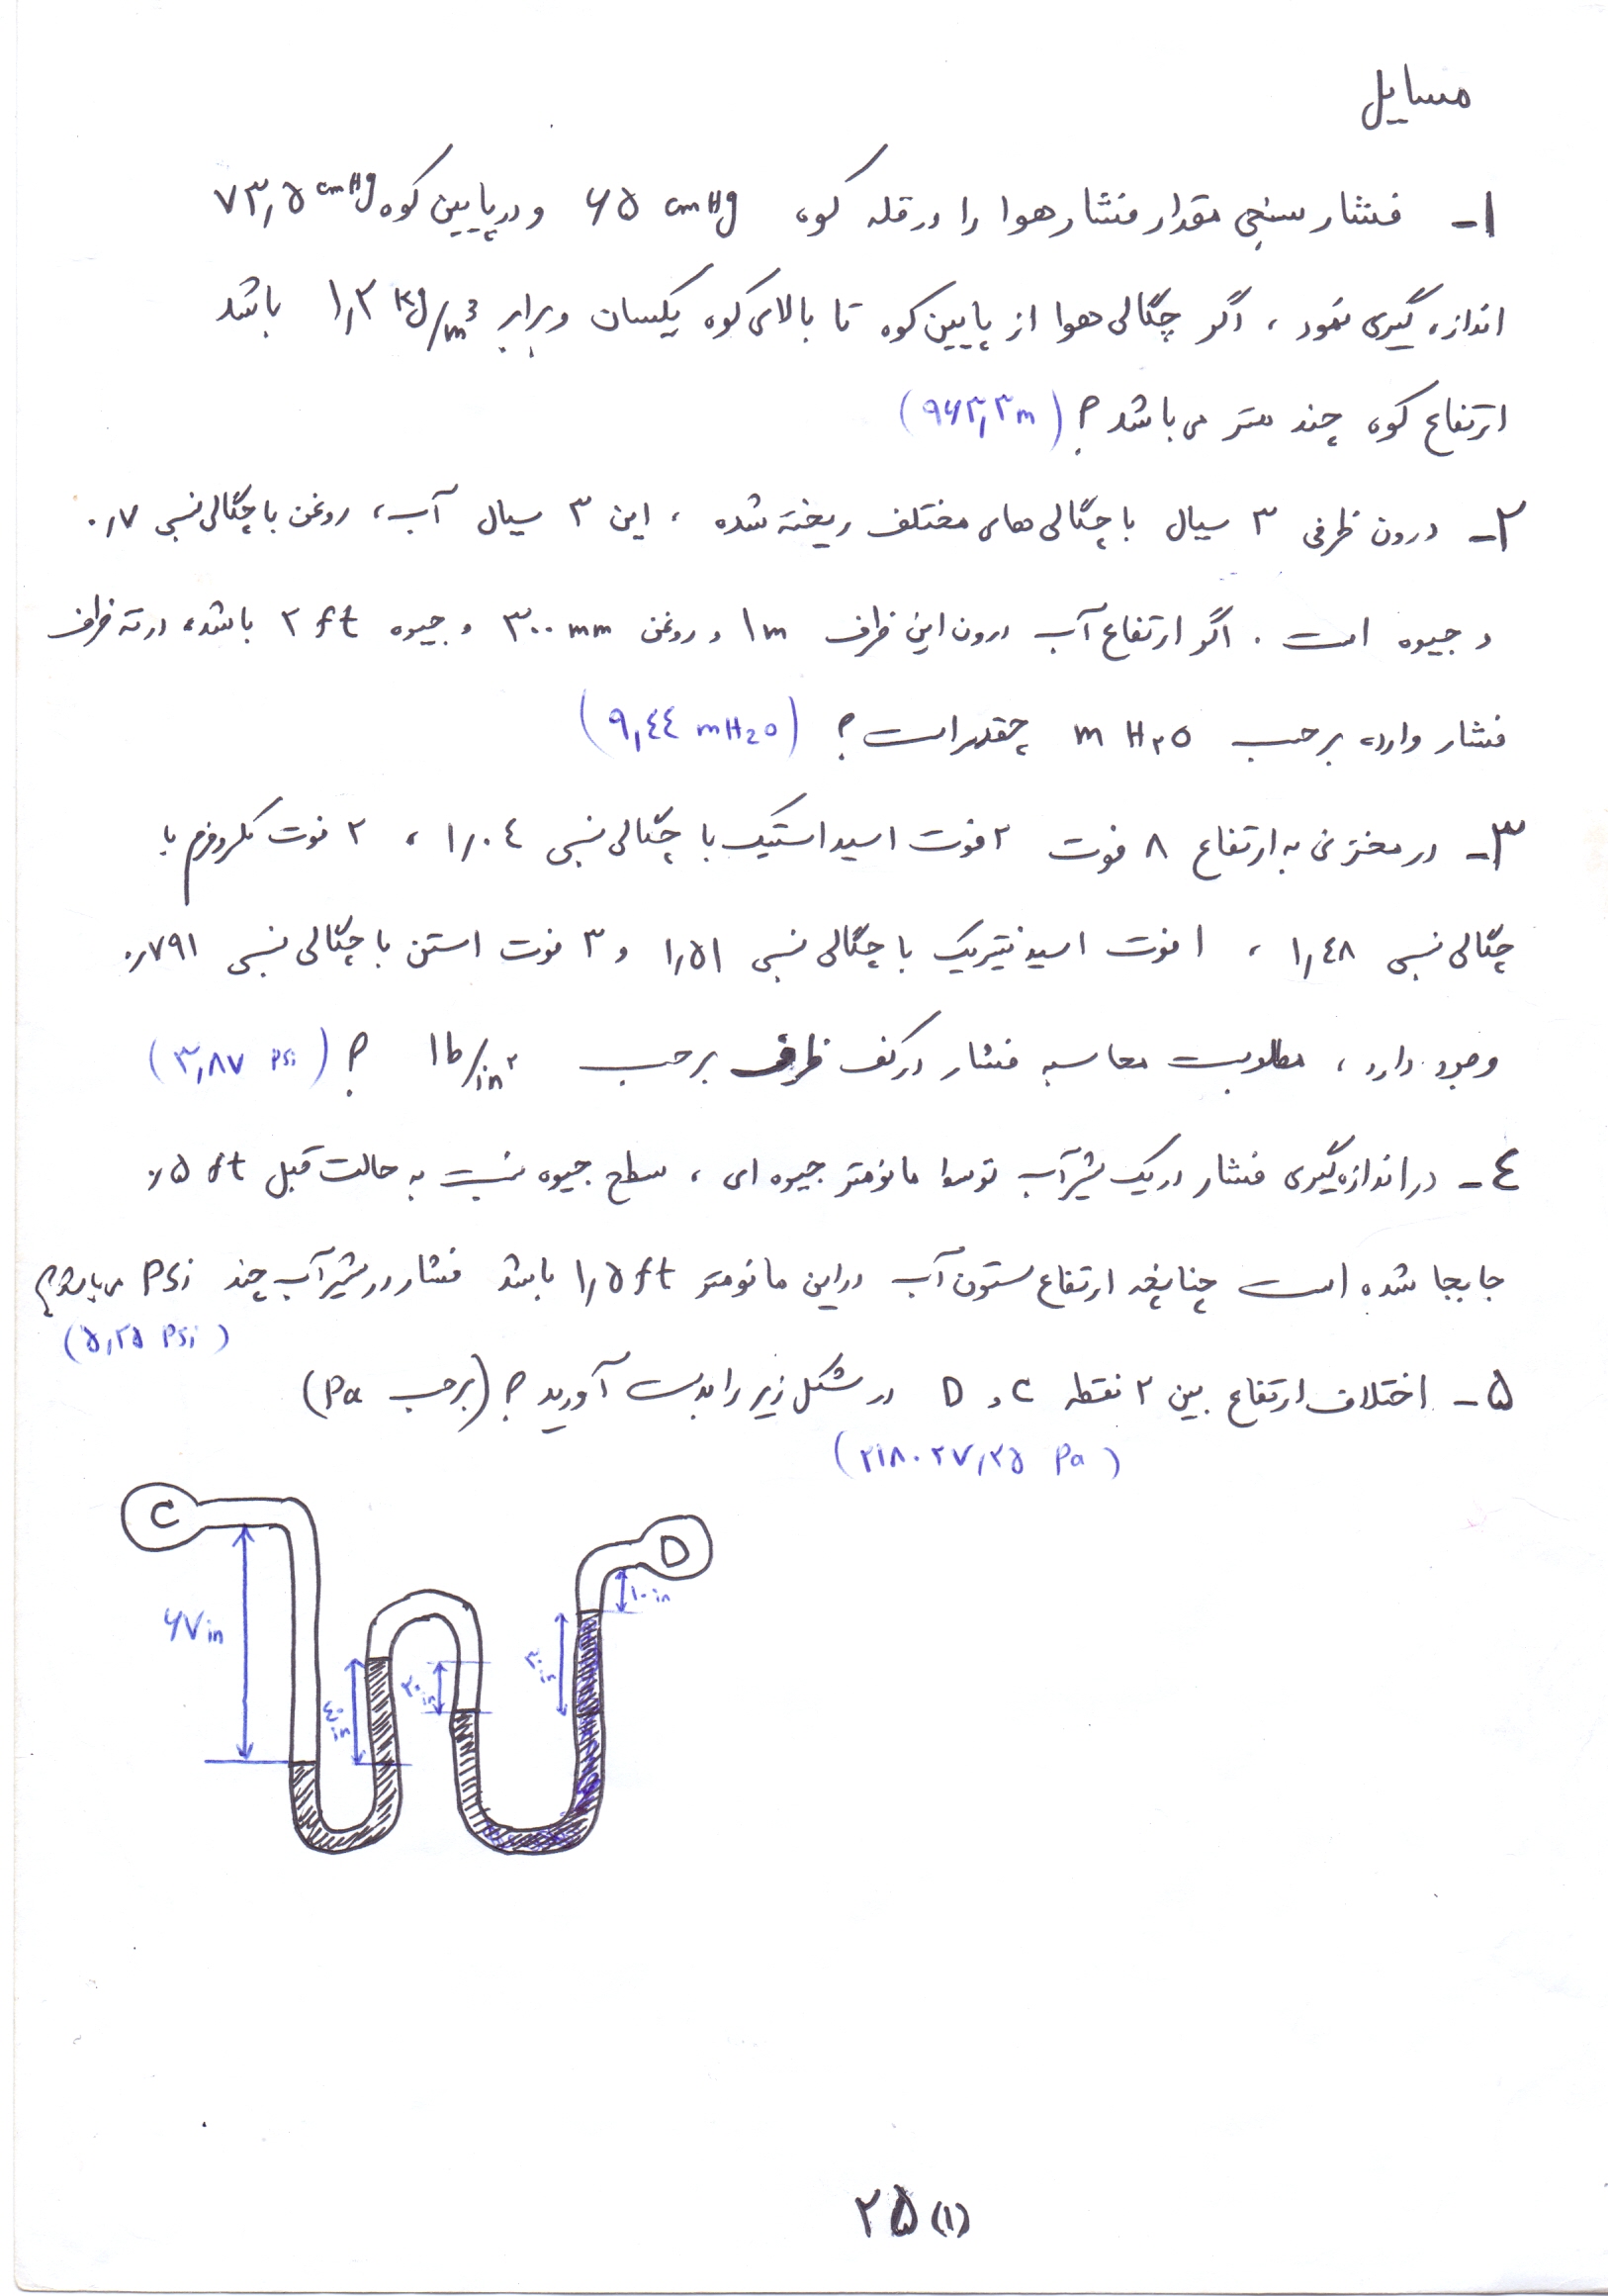 مسایل
۱- فشار سنجی مقدار فشار هوا را در قله کوه ۶۵ cmHg و در پایین کوه ۷۳٫۵ cmHg
اندازه گیری نمود ، اگر چگالی هوا از پایین کوه تا بالای کوه یکسان و برابر ۱٫۲ kg/m³ باشد
ارتفاع کوه چند متر می باشد ؟ (۹۶۳٫۳ m)
۲- درون ظرفی ۳ سیال با چگالی های مختلف ریخته شده ، این ۳ سیال آب ، روغن با چگالی نسبی ۰٫۷
و جیوه است . اگر ارتفاع آب درون این ظرف ۱ m و روغن ۳۰۰ mm و جیوه ۲ ft باشد ، در ته ظرف
فشار وارده برحسب m H₂O چقدر است ؟ (۹٫٤٤ mH₂O)
۳- در مخزنی به ارتفاع ۸ فوت ۲ فوت اسید استیک با چگالی نسبی ۱٫۰٤ ، ۲ فوت کلروفرم با
چگالی نسبی ۱٫٤۸ ، ۱ فوت اسید نیتریک با چگالی نسبی ۱٫۵۱ و ۳ فوت استن با چگالی نسبی ۰٫۷۹۱
وجود دارد ، مطلوبست محاسبه فشار در کف ظرف برحسب lb/in² ؟ (۳٫۸۷ psi)
٤- در اندازه گیری فشار در یک شیر آب توسط مانومتر جیوه ای ، سطح جیوه نسبت به حالت قبل ۰٫۵ ft
جابجا شده است چنانچه ارتفاع ستون آب در این مانومتر ۱٫۵ ft باشد فشار در شیر آب چند Psi می باشد ؟
(۵٫۲۵ Psi)
۵- اختلاف ارتفاع بین ۲ نقطه C و D در شکل زیر را بدست آورید ؟ (برحسب Pa)
(۲۱۸۰۲۷٫۲۵ Pa)
C
D
۱۰ in
۶۷ in
٤۰ in
۲۰ in
۳۰ in
۲۵ (۱)